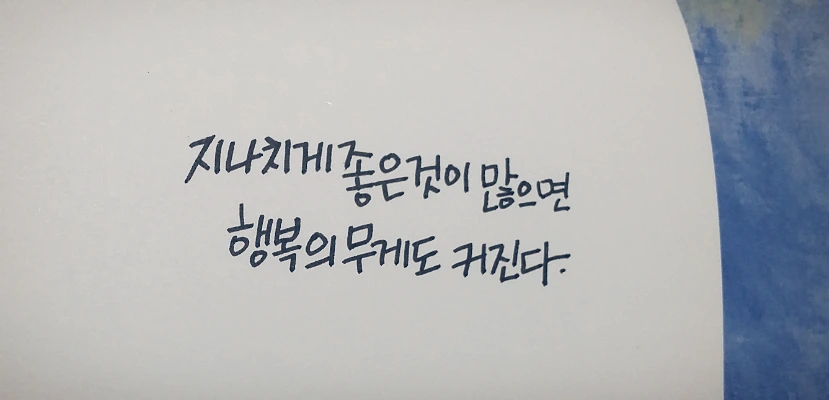 지나치게 좋은것이 많으면
행복의 무게도 커진다.